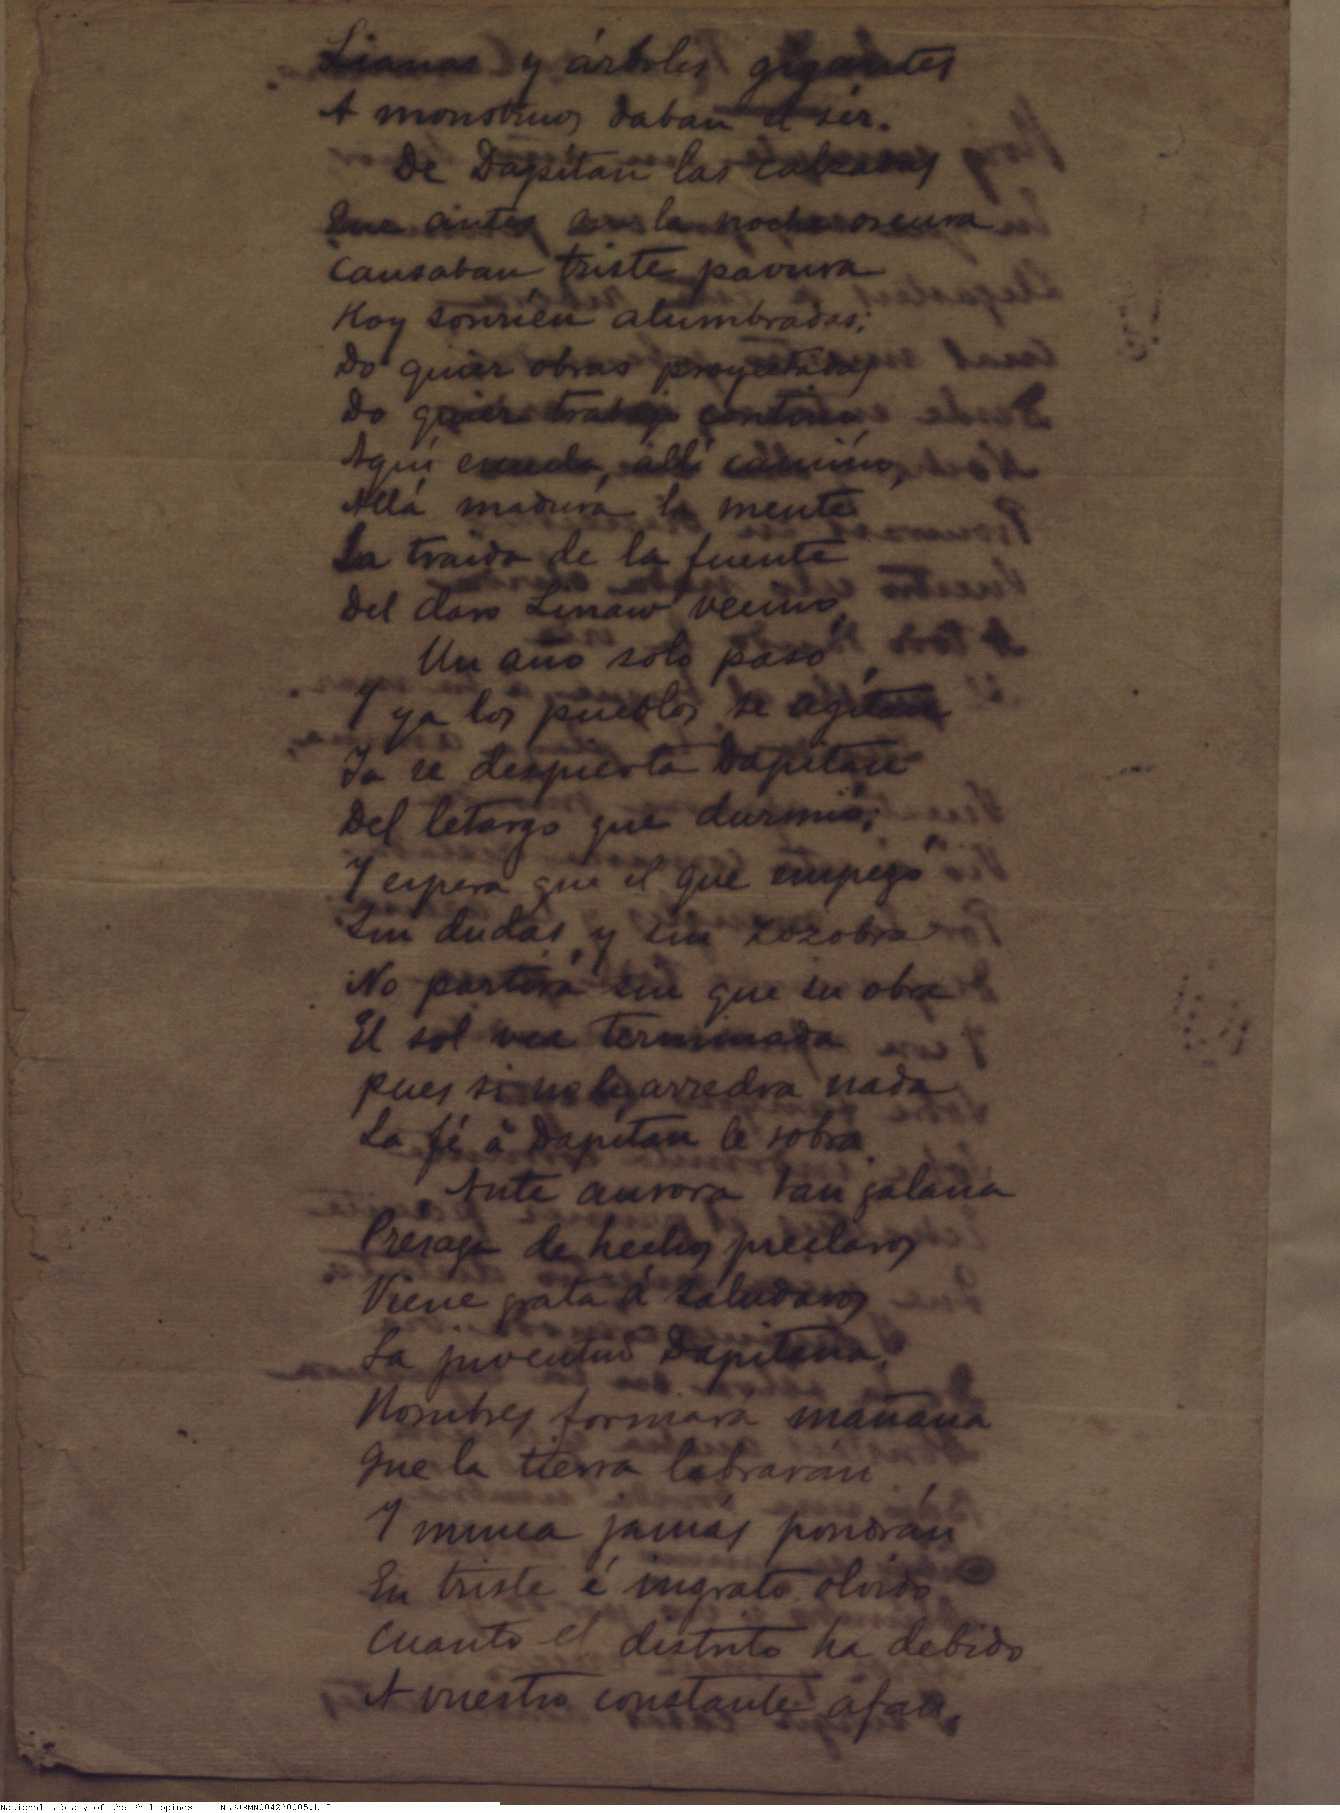 Lianas y árboles gigantes
A monstruos daban el sér.
De Dapitan las calzadas
Que antes en la noche oscura
Causaban triste pavura
Hoy sonríen alumbradas;
Do quier obras proyectadas
Do quier trabajo contínuo
Aquí escuela, allí camino,
Allá madura la mente
La traida de la fuente
Del claro Linaw vecino,
Un año solo pasó
Y ya los pueblos se agitan
Ya se despierta Dapitan
Del letargo que durmió;
Y espera que el que empezó
Sin dudas y sin zozobra
No partirá sin que su obra
El sol vea terminada
pues si no le arredra nada
La fé á Dapitan le sobra.
Ante aurora tan galana
Presagio de hechos preclaros
Viene grata á saludaros
La juventud Dapitana.
Hombres formará mañana
Que la tierra labrarán
Y nunca jamás pondrán
En triste é ingrato olvido
Cuanto el distrito ha debido
A vuestro constante afan.
National Library of the Philippines